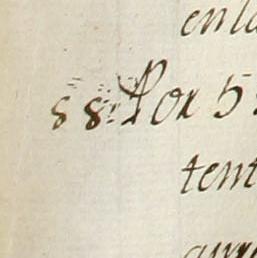 en la
88. Por 5
tent